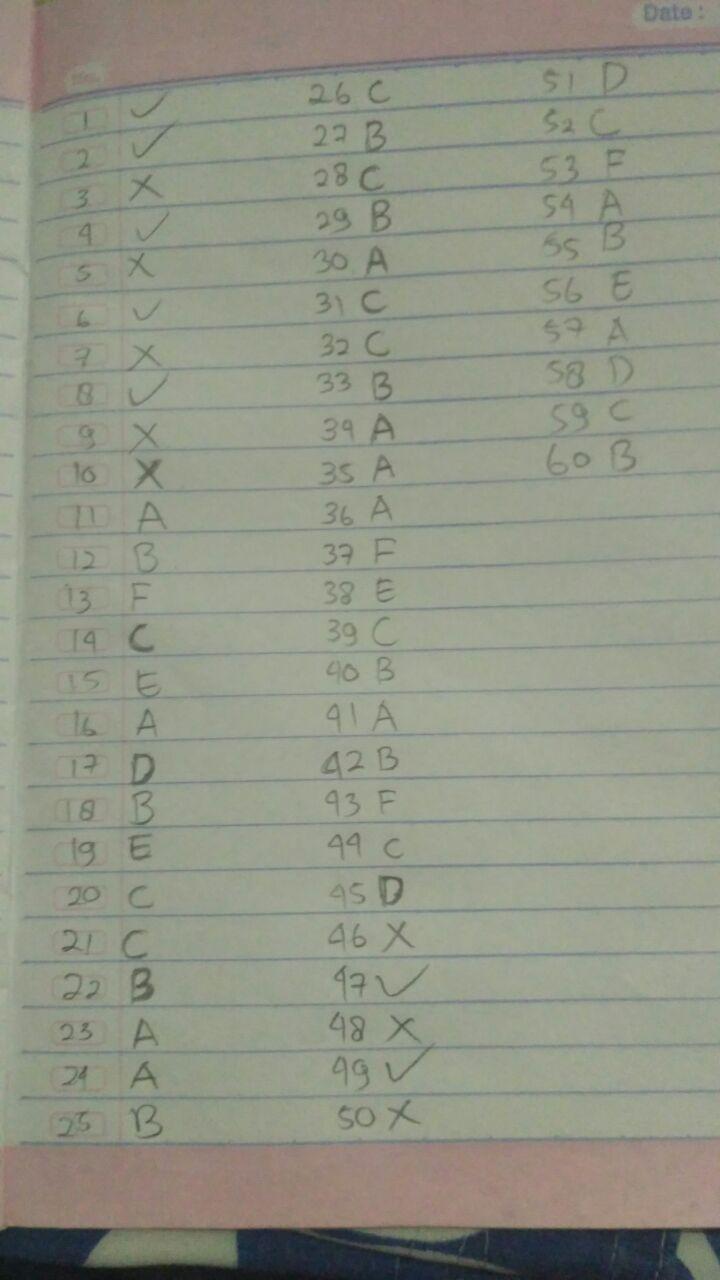 Date :
No.
1 ✓
2 ✓
3 X
4 ✓
5 X
6 ✓
7 X
8 ✓
9 X
10 X
11 A
12 B
13 F
14 C
15 E
16 A
17 D
18 B
19 E
20 C
21 C
22 B
23 A
24 A
25 B
26 C
27 B
28 C
29 B
30 A
31 C
32 C
33 B
34 A
35 A
36 A
37 F
38 E
39 C
40 B
41 A
42 B
43 F
44 C
45 D
46 X
47 ✓
48 X
49 ✓
50 X
51 D
52 C
53 F
54 A
55 B
56 E
57 A
58 D
59 C
60 B